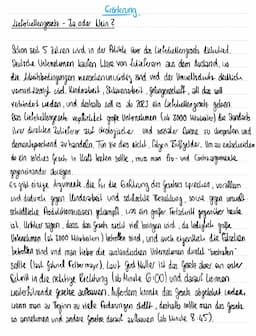 Erörterung
Lieferkettengesetz - Ja oder Nein?
Schon seit 5 Jahren wird in der Politik über das Lieferkettengesetz diskutiert.
Deutsche Unternehmen kaufen Ware von Zulieferern aus dem Ausland, wo
die Arbeitsbedingungen menschenunwürdig sind und der Umweltschutz deutlich
vernachlässigt wird. Kinderarbeit, Sklavenarbeit, Gefangenschaft, all das soll
verhindert werden, und deshalb soll es ab 2023 ein Lieferkettengesetz geben.
Das Lieferkettengesetz verpflichtet große Unternehmen (ab 3000 Mitarbeiter) die Standards
ihrer direkten Zulieferer auf ökologische und soziale Aspekte zu überprüfen und
dementsprechend zu handeln. Tun sie dies nicht, folgen Bußgelder. Um zu entscheiden
ob ein solches Gesetz in Kraft treten sollte, muss man Pro- und Contraargumente
gegeneinander abwägen.
Es gibt einige Argumente, die für die Einführung des Gesetzes sprechen, vor allem
wird dadurch gegen Kinderarbeit und schlechte Bezahlung, sowie gegen umwelt-
schädliche Produktionsweisen gekämpft, was ein großer Fortschritt gegenüber heute
ist. Kritiker sagen, dass das Gesetz nicht viel bringen wird, da lediglich große
Unternehmen (ab 3000 Mitarbeitern) betroffen sind, und auch eigentlich die Falschen
betroffen sind und man lieber die ausländischen Unternehmen direkt "bestrafen"
sollte (laut Gabriel Felbermayr). Laut Gerd Müller ist das Gesetz aber ein erster
Schritt in die richtige Richtung (ab Minute 1:00) und darauf können
weiterführende Gesetze aufbauen. Außerdem könnte das Gesetz abgelehnt werden,
wenn man zu Beginn zu viele Forderungen stellt, deshalb sollte man das Gesetz
so annehmen und andere Gesetze darauf aufbauen (ab Minute 8:45).